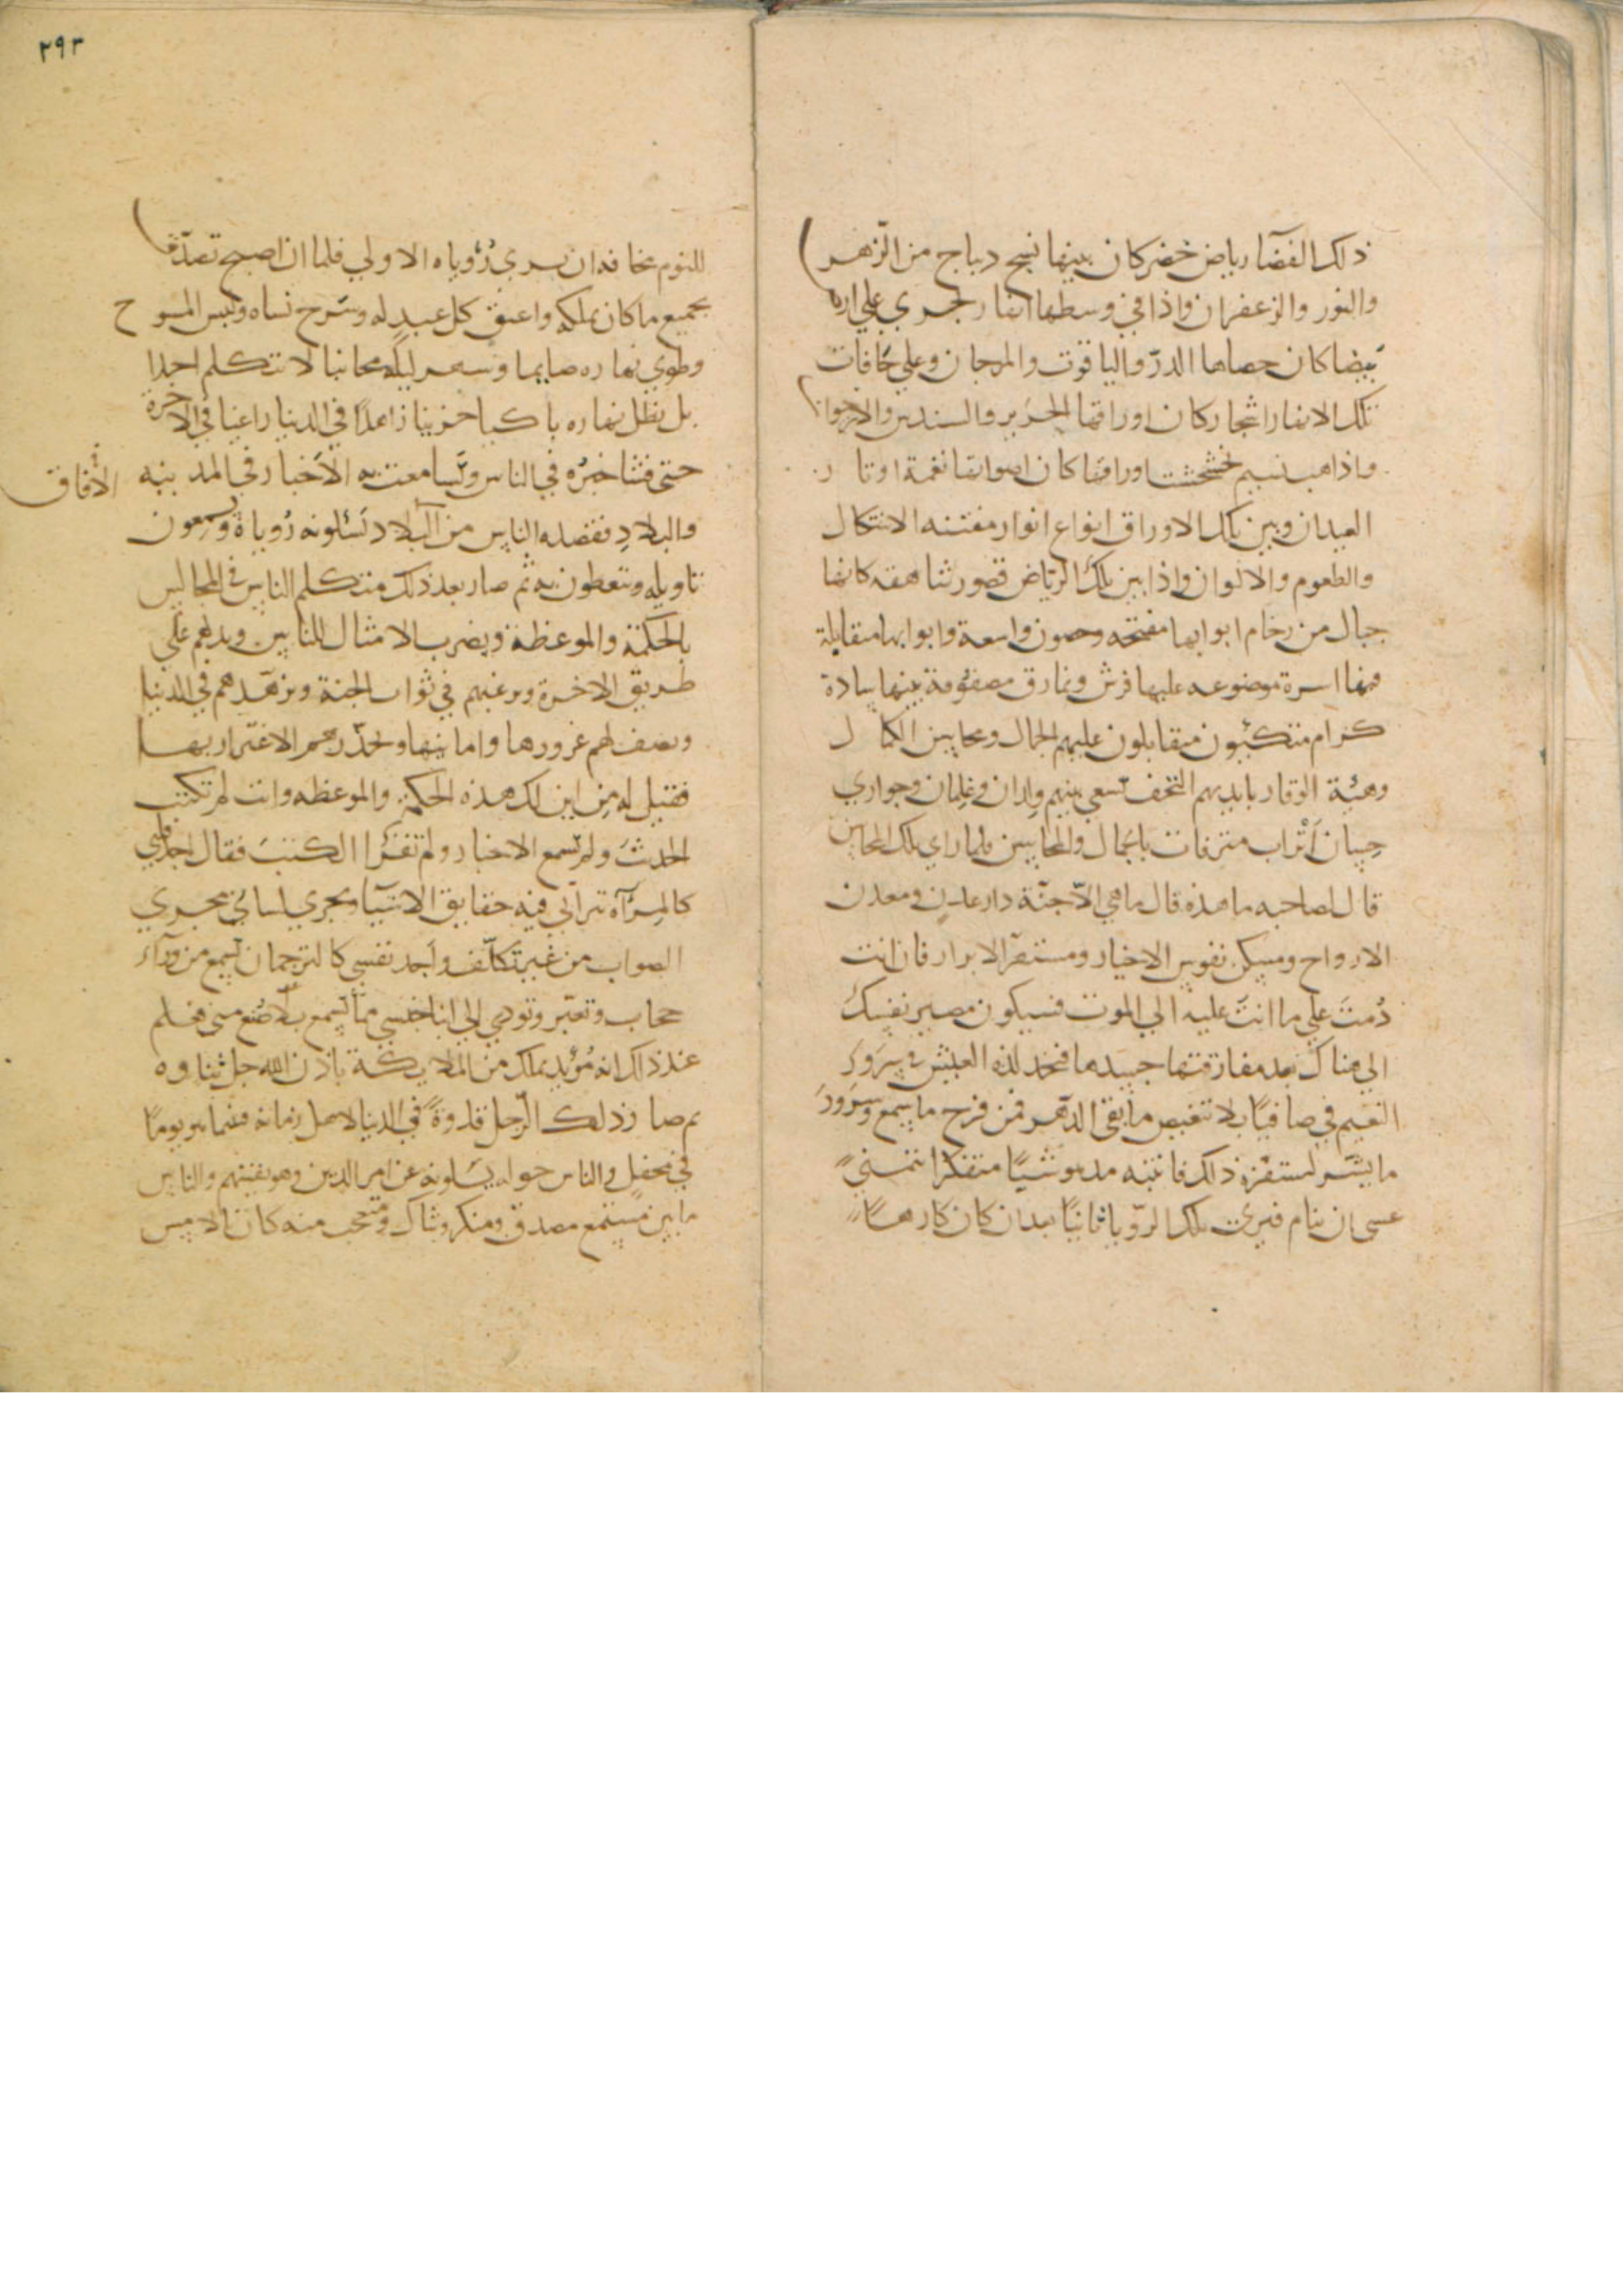 ذلك الفضآ رياض خضر كان بينها نسج ديباج من الزهر
والنور والزعفران واذا في وسطها انهار تجري علي ارض
بيضا كان حصاها الدر والياقوت والمرجان وعلي حافات
تلك الانهار اشجار كان اوراقها الحرير والسندس والارجوان
واذا هب نسيم تخشخشت اوراقها كان اصواتها نغمة اوتار
العيدان وبين تلك الاوراق انواع انوار مفتنه الاشكال
والطعوم والالوان واذا بين تلك الرياض قصور شاهقه كانها
جبال من رخام ابوابها مفتحه وحصون واسعة وابوابها متقابلة
فيها اسرة موضوعه عليها فرش ونمارق مصفوفة بينها سادة
كرام متكيون متقابلون عليهم الجمال ومحاسن الكمال
وهيئة الوقار بايديهم التحف تسعي بينهم ولدان وغلمان وجواري
حسان أتراب مترفات بالجمال والمحاسن فلما راي تلك المحاسن
قال لصاحبه ما هذه قال ما هي الا جنة دار عدن ومعدن
الارواح ومسكن نفوس الاخيار ومستقر الابرار فان انت
دمت علي ما انت عليه الي الموت فسيكون مصير نفسك
الي هناك بعد مفارقتها جسدها فتجد لذه العيش وسرور
النعيم في صافيا بلا تنغيص ما بقي الدهر فمن فرح ما سمع وسرور
ما بشر استفزه ذلك فانتبه مدهوشيا متفكرا يتمني
عسي ان ينام فيري تلك الرويا ثانيا بعد ان كان كارها
٢٩٣
للنوم مخافه ان يري رؤياه الاولي فلما ان اصبح تصدق
بجميع ما كان يملكه واعتق كل عبيد له وسرح نساه ولبس المسوح
وطوي نهاره صايما وسهر ليله مجانبا لا يتكلم احدا
بل يظل نهاره باكيا حزينا زاهدا في الدنيا راغبا في الاخرة
حتي فشا خبره في الناس وتسامعت به الاخبار في المدينه
الافاق
والبلاد فقصده الناس من البلاد يسئلونه رؤياه ويسمعون
تاويله ويتعظون به ثم صار بعد ذلك يتكلم الناس في المجالس
بالحكمة والموعظة ويضرب الامثال للناس ويدلهم علي
طريق الاخرة ويرغبهم في ثواب الجنة ويزهدهم في الدنيا
ويصف لهم غرورها وامانيها ويحذرهم الاغترار بها
فقيل له من اين لك هذه الحكمة والموعظه وانت لم تكتب
الحديث ولم تسمع الاخبار ولم تقرا الكتب فقال اجد قلبي
كالمرآة تترآي فيه حقايق الاشيا ويجري لساني مجري
الصواب من غير تكلف واجد نفسي كالترجمان تسمع من ورآء
حجاب وتعبر وتودي الي ابنا جنسي مما تسمع بلا صنع مني فعلم
عند ذلك انه مؤيد بملك من الملايكة باذن الله جل ثناوه
ثم صار ذلك الرجل قدوة في الدنيا لاهل زمانه فبينما هو يوما
في محفل والناس حوله يسلونه عن امر الدين وهو يفتيهم والناس
ما بين مستمع مصدق ومنكر وشاك ومتعجب منه كان بالامس